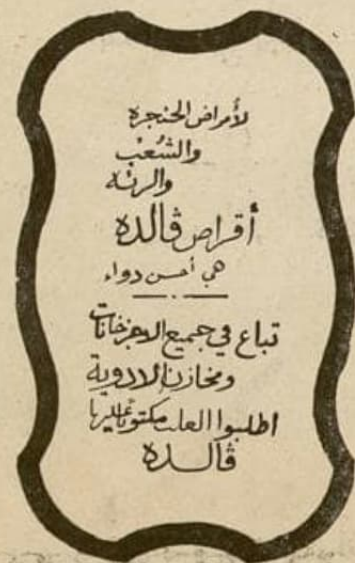 لأمراض الحنجرة
والشُعب
والرئه
أقراص ڤالده
هي أحسن دواء
تباع في جميع الاجزخانات
ومخازن الادوية
اطلبوا العلب مكتوبا عليها
ڤالده